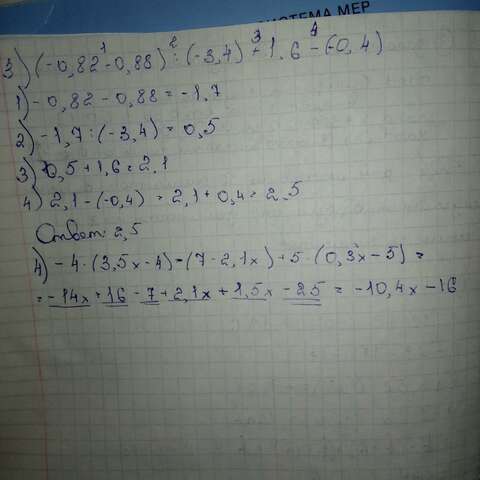 СИСТЕМА МЕР
3) (-0,82 - 0,88) : (-3,4) + 1,6 - (-0,4)
1) -0,82 - 0,88 = -1,7
2) -1,7 : (-3,4) = 0,5
3) 0,5 + 1,6 = 2,1
4) 2,1 - (-0,4) = 2,1 + 0,4 = 2,5
Ответ: 2,5
4) -4 · (3,5x - 4) - (7 - 2,1x) + 5 · (0,3x - 5) =
= -14x + 16 - 7 + 2,1x + 1,5x - 25 = -10,4x - 16